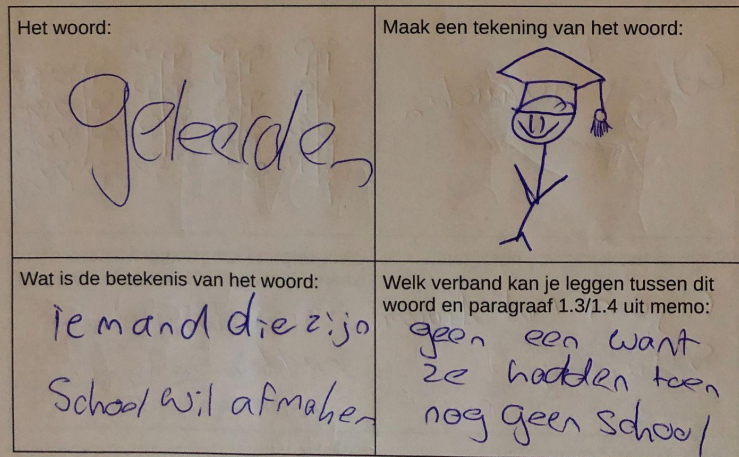 Het woord:
geleerden
Maak een tekening van het woord:
Wat is de betekenis van het woord:
iemand die zijn
School wil afmaken
Welk verband kan je leggen tussen dit
woord en paragraaf 1.3/1.4 uit memo:
geen een want
ze hadden toen
nog geen school